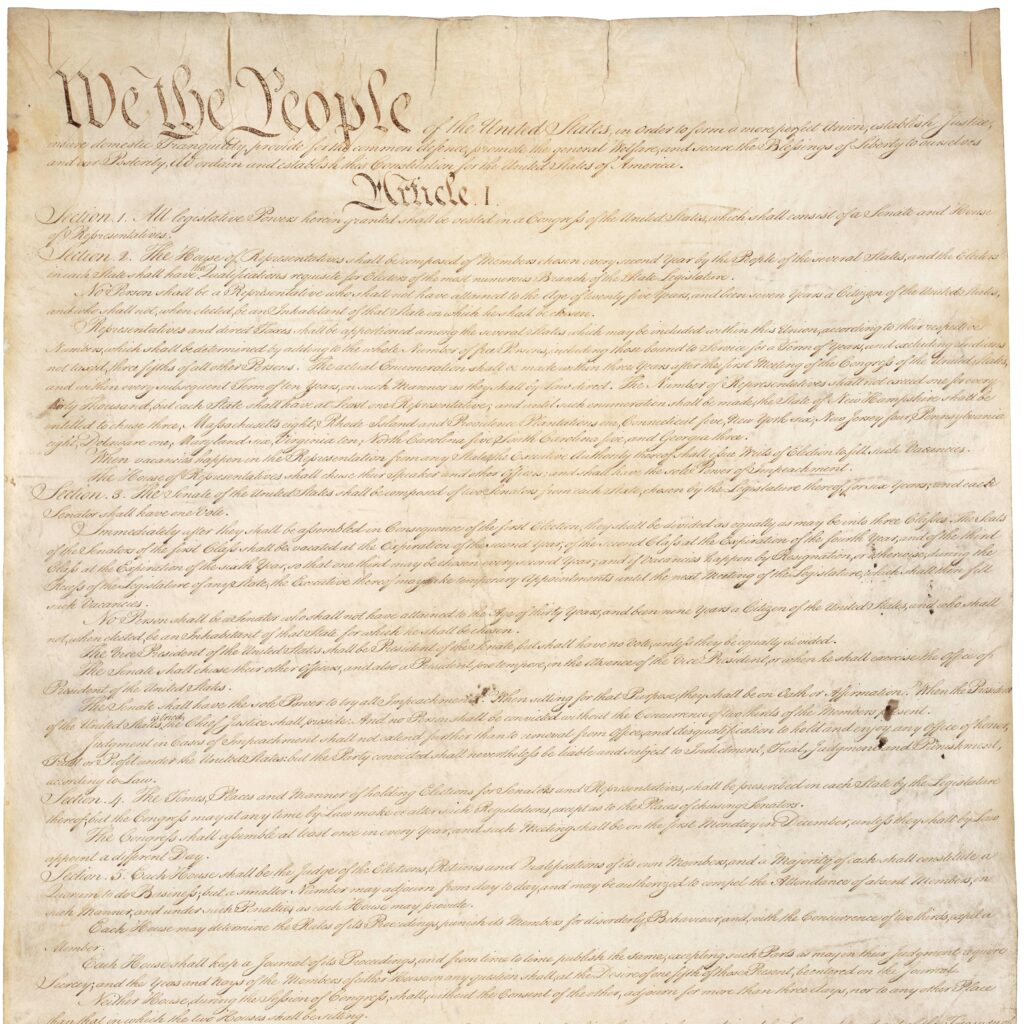 We the People of the United States, in Order to form a more perfect Union, establish Justice,
insure domestic Tranquility, provide for the common defence, promote the general Welfare, and secure the Blessings of Liberty to ourselves
and our Posterity, do ordain and establish this Constitution for the United States of America.
Article. I.
Section. 1. All legislative Powers herein granted shall be vested in a Congress of the United States, which shall consist of a Senate and House
of Representatives.
Section. 2. The House of Representatives shall be composed of Members chosen every second Year by the People of the several States, and the Electors
in each State shall have the Qualifications requisite for Electors of the most numerous Branch of the State Legislature.
No Person shall be a Representative who shall not have attained to the Age of twenty five Years, and been seven Years a Citizen of the United States,
and who shall not, when elected, be an Inhabitant of that State in which he shall be chosen.
Representatives and direct Taxes shall be apportioned among the several States which may be included within this Union, according to their respective
Numbers, which shall be determined by adding to the whole Number of free Persons, including those bound to Service for a Term of Years, and excluding Indians
not taxed, three fifths of all other Persons. The actual Enumeration shall be made within three Years after the first Meeting of the Congress of the United States,
and within every subsequent Term of ten Years, in such Manner as they shall by Law direct. The Number of Representatives shall not exceed one for every
thirty Thousand, but each State shall have at Least one Representative; and until such enumeration shall be made, the State of New Hampshire shall be
entitled to chuse three, Massachusetts eight, Rhode Island and Providence Plantations one, Connecticut five, New York six, New Jersey four, Pennsylvania
eight, Delaware one, Maryland six, Virginia ten, North Carolina five, South Carolina five, and Georgia three.
When vacancies happen in the Representation from any State, the Executive Authority thereof shall issue Writs of Election to fill such Vacancies.
The House of Representatives shall chuse their Speaker and other Officers; and shall have the sole Power of Impeachment.
Section. 3. The Senate of the United States shall be composed of two Senators from each State, chosen by the Legislature thereof, for six Years; and each
Senator shall have one Vote.
Immediately after they shall be assembled in Consequence of the first Election, they shall be divided as equally as may be into three Classes. The Seats
of the Senators of the first Class shall be vacated at the Expiration of the second Year, of the second Class at the Expiration of the fourth Year, and of the third
Class at the Expiration of the sixth Year, so that one third may be chosen every second Year; and if Vacancies happen by Resignation, or otherwise, during the
Recess of the Legislature of any State, the Executive thereof may make temporary Appointments until the next Meeting of the Legislature, which shall then fill
such Vacancies.
No Person shall be a Senator who shall not have attained to the Age of thirty Years, and been nine Years a Citizen of the United States, and who shall
not, when elected, be an Inhabitant of that State for which he shall be chosen.
The Vice President of the United States shall be President of the Senate, but shall have no Vote, unless they be equally divided.
The Senate shall chuse their other Officers, and also a President pro tempore, in the Absence of the Vice President, or when he shall exercise the Office of
President of the United States.
The Senate shall have the sole Power to try all Impeachments. When sitting for that Purpose, they shall be on Oath or Affirmation. When the President
of the United States is tried, the Chief Justice shall preside: And no Person shall be convicted without the Concurrence of two thirds of the Members present.
Judgment in Cases of Impeachment shall not extend further than to removal from Office, and disqualification to hold and enjoy any Office of honor,
Trust or Profit under the United States: but the Party convicted shall nevertheless be liable and subject to Indictment, Trial, Judgment and Punishment,
according to Law.
Section. 4. The Times, Places and Manner of holding Elections for Senators and Representatives, shall be prescribed in each State by the Legislature
thereof; but the Congress may at any time by Law make or alter such Regulations, except as to the Places of chusing Senators.
The Congress shall assemble at least once in every Year, and such Meeting shall be on the first Monday in December, unless they shall by Law
appoint a different Day.
Section. 5. Each House shall be the Judge of the Elections, Returns and Qualifications of its own Members, and a Majority of each shall constitute a
Quorum to do Business; but a smaller Number may adjourn from day to day, and may be authorized to compel the Attendance of absent Members, in
such Manner, and under such Penalties as each House may provide.
Each House may determine the Rules of its Proceedings, punish its Members for disorderly Behaviour, and, with the Concurrence of two thirds, expel a
Member.
Each House shall keep a Journal of its Proceedings, and from time to time publish the same, excepting such Parts as may in their Judgment require
Secrecy; and the Yeas and Nays of the Members of either House on any question shall, at the Desire of one fifth of those Present, be entered on the Journal.
Neither House, during the Session of Congress, shall, without the Consent of the other, adjourn for more than three days, nor to any other Place
than that in which the two Houses shall be sitting.